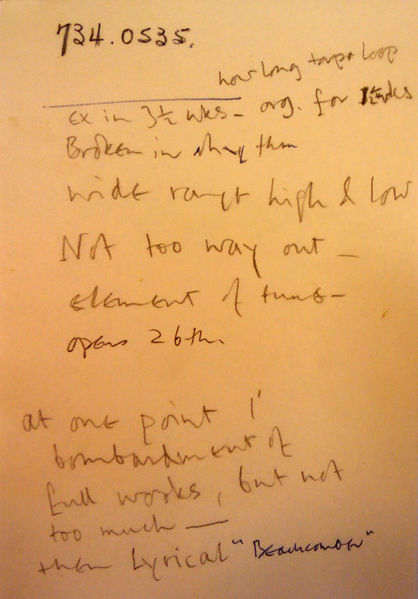 734.0535.
how long tape loop
Ex in 3½ wks - org. for 1½ wks
Broken in
wide range high & low
Not too way out -
element of tune -
opens 26th.
at one point 1'
bombardment of
full works, but not
too much —
then Lyrical "Beachcomber"